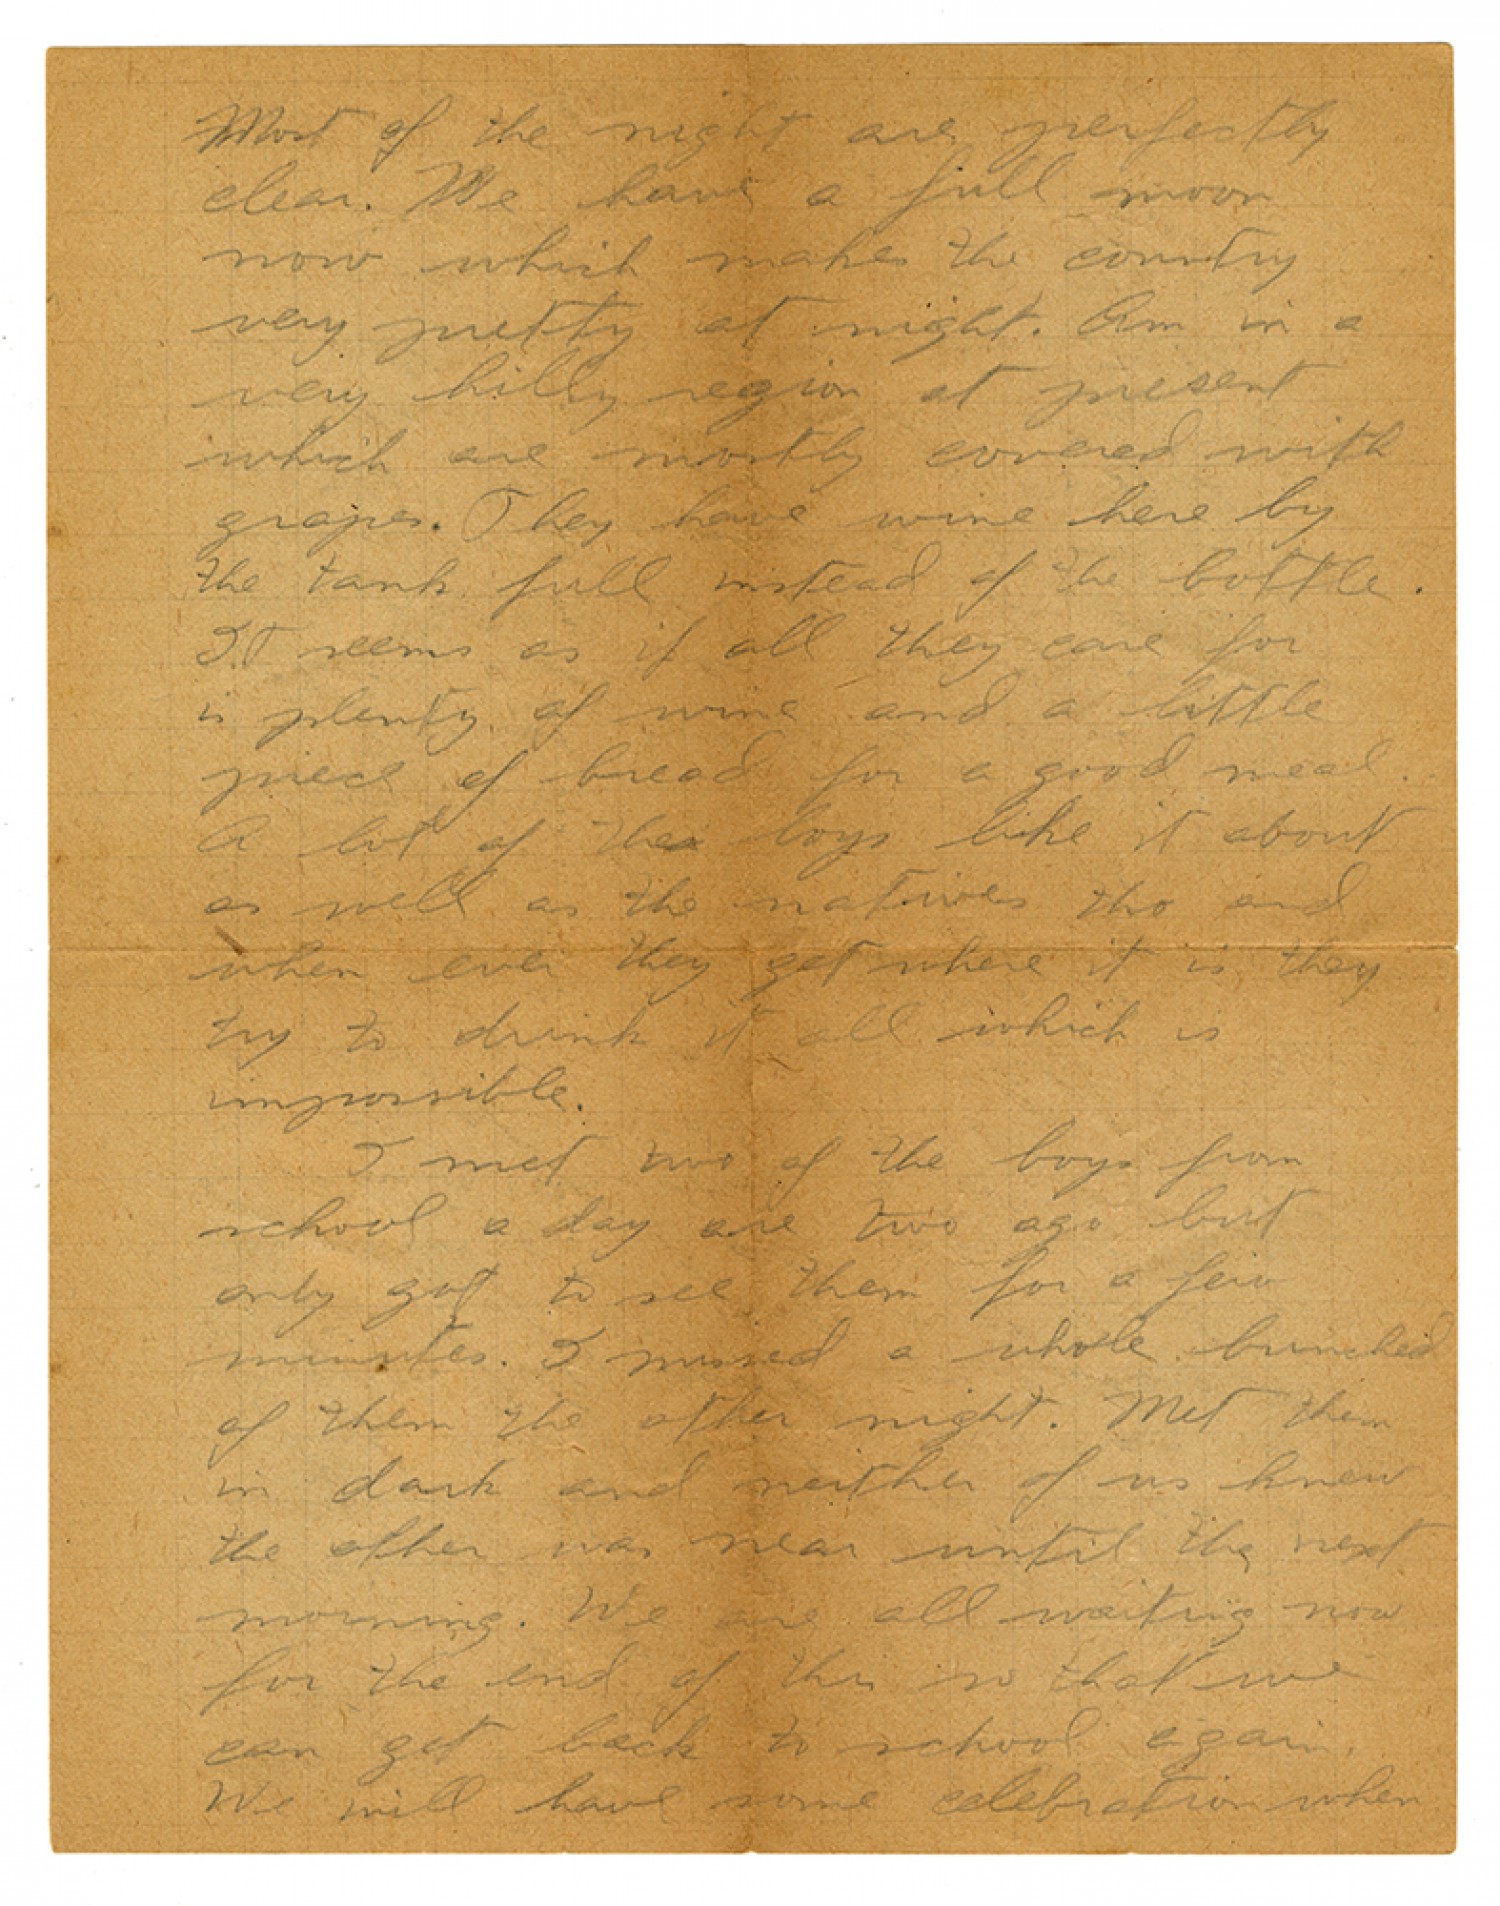 Most of the night are perfectly
clear. We have a full moon
now which makes the country
very pretty at night. Am in a
very hilly region at present
which are mostly covered with
grapes. They have wine here by
the tank full instead of the bottle.
It seems as if all they care for
is plenty of wine and a little
piece of bread for a good meal.
A lot of the boys like it about
as well as the natives tho and
when ever they get where it is they
try to drink it all which is
impossible.
I met two of the boys from
school a day are two ago but
only got to see them for a few
minutes. I missed a whole bunched
of them the other night. Met them
in dark and neither of us knew
the other was near until the next
morning. We are all waiting now
for the end of this so that we
can get back to school again.
We will have some celebration when